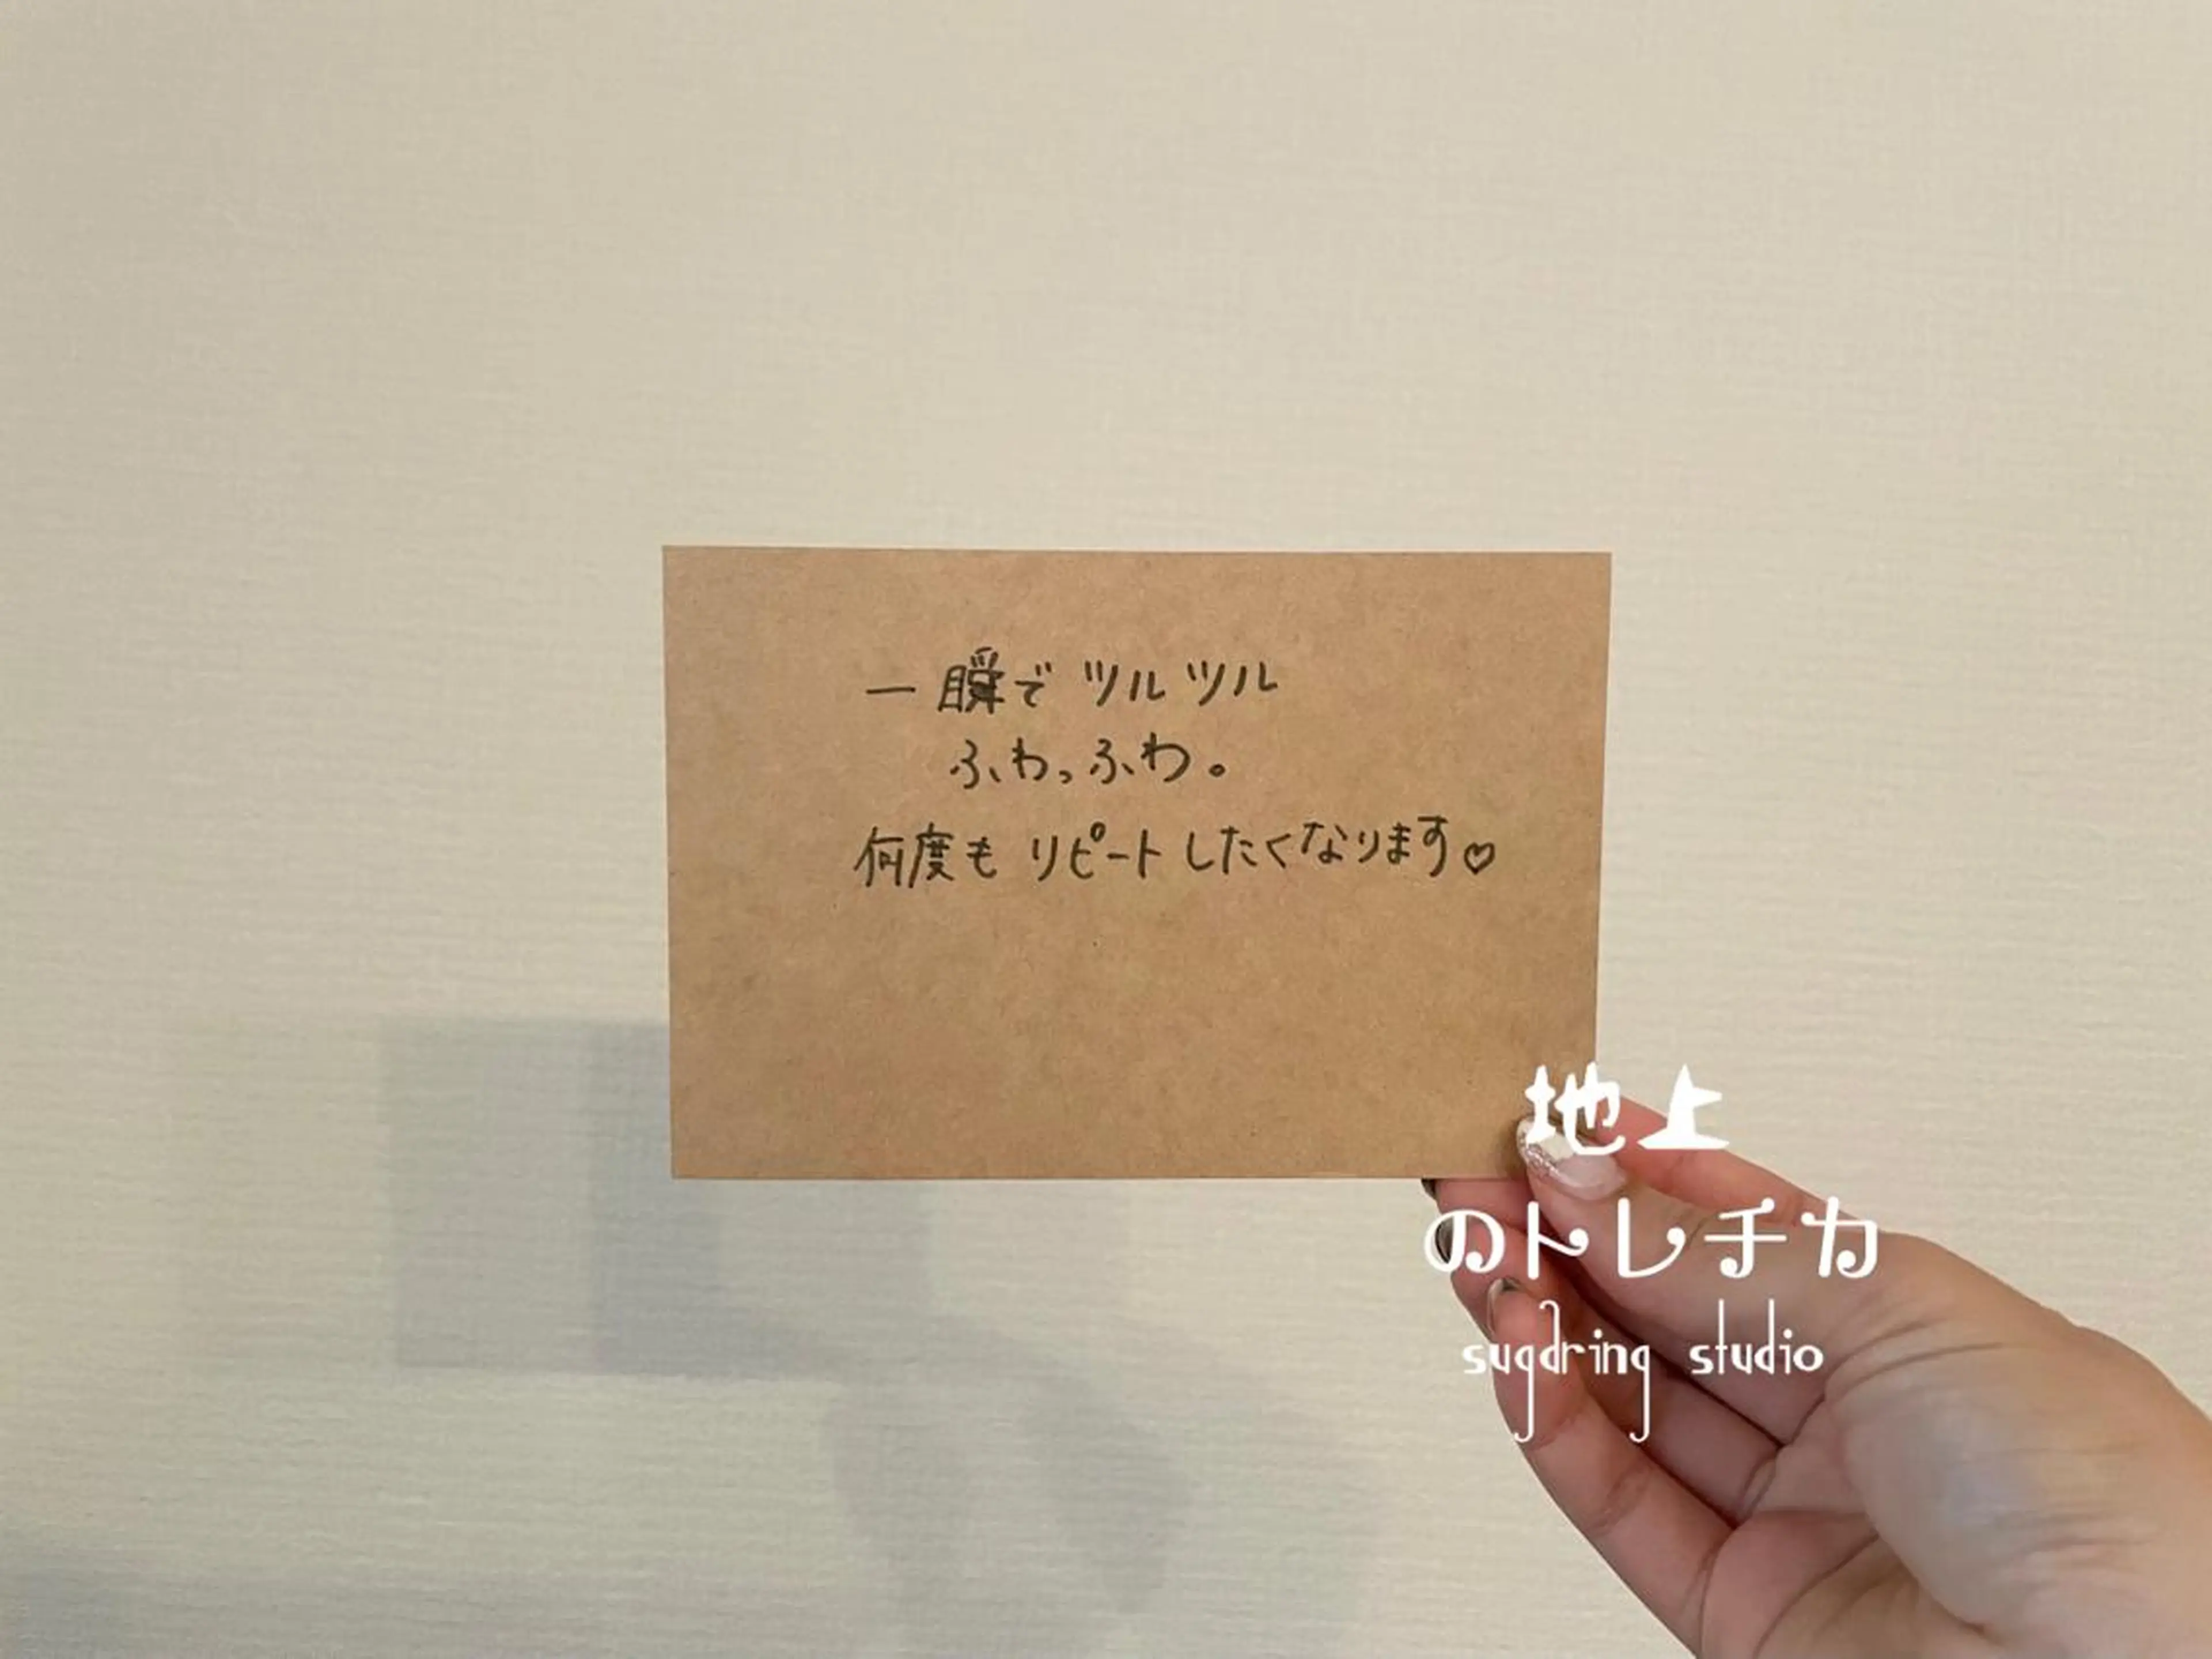 一瞬でツルツル
ふわっふわ。
何度もリピートしたくなります♡
地上
のトレチカ
sugdring studio